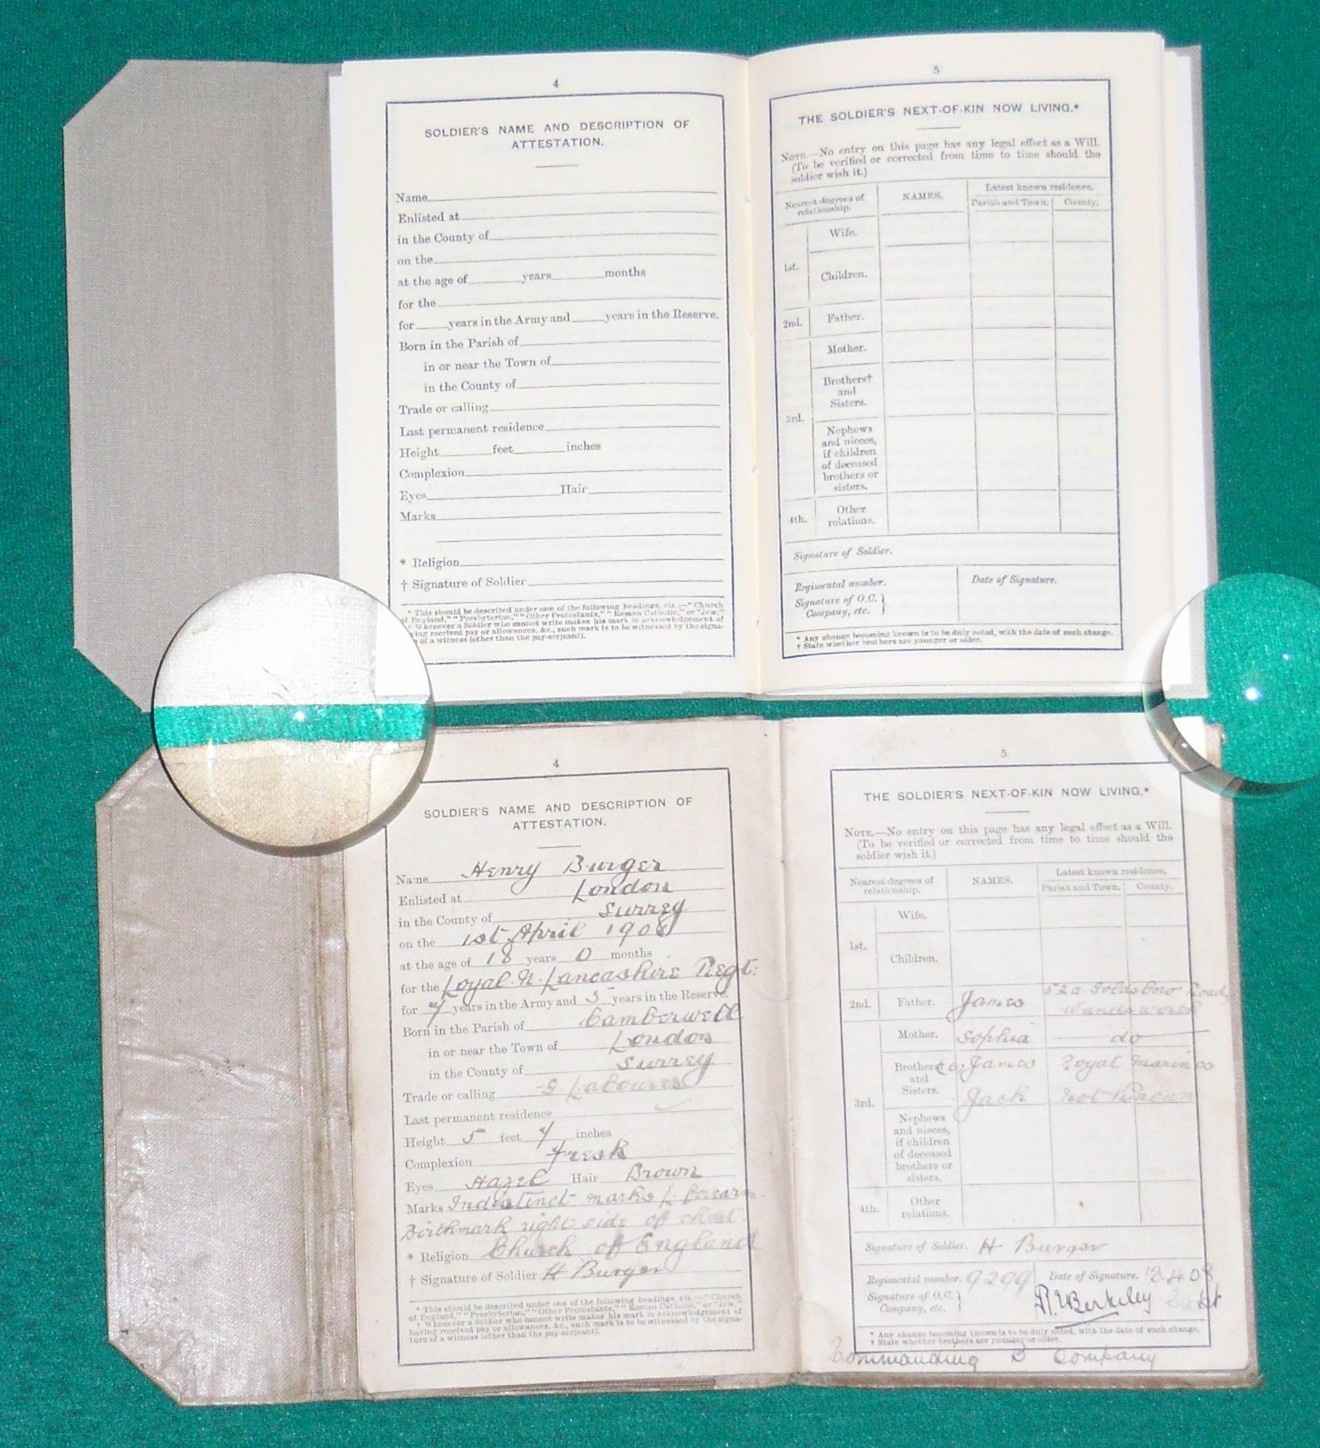 4
SOLDIER'S NAME AND DESCRIPTION OF
ATTESTATION.
Name
Enlisted at
in the County of
on the
at the age of years months
for the
for years in the Army and years in the Reserve.
Born in the Parish of
in or near the Town of
in the County of
Trade or calling
Last permanent residence
Height feet inches
Complexion
Eyes Hair
Marks
* Religion
† Signature of Soldier
* This should be described under one of the following headings, viz.:—"Church
of England," "Presbyterian," "Other Protestants," "Roman Catholic," or "Jew."
† Whenever a Soldier who cannot write makes his mark in acknowledgment of
ing received pay or allowances, &c., such mark is to be witnessed by the signa-
of a witness (other than the pay-serjeant).
5
THE SOLDIER'S NEXT-OF-KIN NOW LIVING.*
NOTE.—No entry on this page has any legal effect as a Will.
(To be verified or corrected from time to time should the
soldier wish it.)
Nearest degrees of relationship. NAMES. Latest known residence.
Parish and Town. County.
1st. Wife.
Children.
2nd. Father.
3rd. Mother.
Brothers†
and
Sisters.
Nephews
and nieces,
if children
of deceased
brothers or
sisters.
4th. Other
relations.
Signature of Soldier.
Regimental number. Date of Signature.
Signature of O.C.
Company, etc.
* Any change becoming known is to be duly noted, with the date of such change.
† State whether brothers are younger or older.
4
SOLDIER'S NAME AND DESCRIPTION OF
ATTESTATION.
Name Henry Burger
Enlisted at London
in the County of Surrey
on the 1st April 1908
at the age of 18 years 0 months
for the Loyal N. Lancashire Regt.
for 7 years in the Army and 5 years in the Reserve.
Born in the Parish of Camberwell
in or near the Town of London
in the County of Surrey
Trade or calling Labourer
Last permanent residence
Height 5 feet 4 inches
Complexion Fresh
Eyes Hazel Hair Brown
Marks Indistinct marks L. forearm
Birthmark right side of chest.
* Religion Church of England
† Signature of Soldier H Burger
* This should be described under one of the following headings, viz.:—"Church
of England," "Presbyterian," "Other Protestants," "Roman Catholic," or "Jew."
† Whenever a Soldier who cannot write makes his mark in acknowledgment of
having received pay or allowances, &c., such mark is to be witnessed by the signa-
ture of a witness (other than the pay-serjeant).
5
THE SOLDIER'S NEXT-OF-KIN NOW LIVING.*
NOTE.—No entry on this page has any legal effect as a Will.
(To be verified or corrected from time to time should the
soldier wish it.)
Nearest degrees of relationship. NAMES. Latest known residence.
Parish and Town. County.
1st. Wife.
Children.
2nd. Father. James 52a Goldsboro Road,
Wandsworth
3rd. Mother. Sophia do
Brothers James Royal Marines
and
Sisters. Jack Not Known
Nephews
and nieces,
if children
of deceased
brothers or
sisters.
4th. Other
relations.
Signature of Soldier. H Burger
Regimental number. 9299 Date of Signature. 4 08
Signature of O.C. Berkeley Capt
Company, etc.
* Any change becoming known is to be duly noted, with the date of such change.
† State whether brothers are younger or older.
Commanding Company